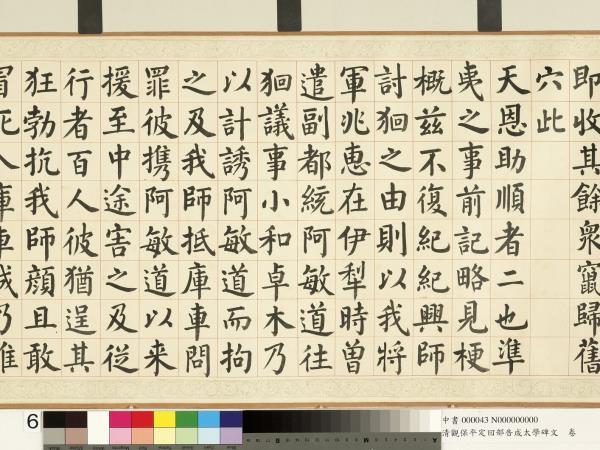 即收其餘衆竄歸舊
穴此
天恩助順者二也準
夷之事前記略見梗
概茲不復紀紀興師
討之由則以我將
軍兆惠在伊犁時曽
遣副都統阿敏道往
議事小和卓木乃
以計誘阿敏道而拘
之及我師抵庫車問
罪彼携阿敏道以来
援至中途害之及從
行者百人彼猶逞其
狂勃抗我師顔且敢
冒死入庫車城乃
6
中書 000043 N000000000
清觀保平定回部告成太學碑文 卷